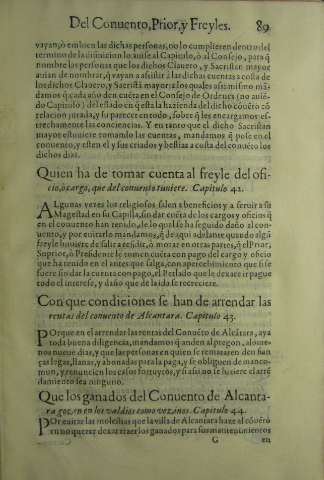 Del Conuento, Prior, y Freyles. 89
vayan, ò embien las dichas personas, no lo cumplieren dentro del
termino de la difinicion lo auise al Capitulo, ò al Consejo, para q̃
nombre las personas que los dichos Clauero, y Sacristan mayor
auian de nombrar, q̃ vayan a assistir à las dichas cuentas a costa de
los dichos Clauero, y Sacristã mayor: a los quales assi mismo mã
damos q̃ cada año den cuẽta en el Consejo de Ordenes (no auiẽ
do Capitulo) del estado en q̃ esta la hazienda del dicho cõuẽto cõ
relacion jurada, y su parecer en todo, sobre q̃ les encargamos es-
trechamente las conciencias. Y en tanto que el dicho Sacristan
mayor estuuiere tomando las cuentas, mandamos q̃ pose en el
conuento, y esten el y sus criados y bestias a costa del conuẽto los
dichos dias.
Quien ha de tomar cuenta al freyle del ofi-
cio, ò cargo, que del conuento tuuiere. Capitulo 42.
ALgunas vezes los religiosos salen a beneficios y a seruir a su
Magestad en su Capilla, sin dar cuẽta de los cargos y oficios q̃
en el conuento han tenido, de lo qual se ha seguido daño al con-
uento, y por euitarlo mandamos, q̃ de aqui adelante quando algũ
freyle huuiere de salir a residir, ò morar en otras partes, q̃ el Prior,
Suprior, ò Presidente le tomen cuẽta con pago del cargo y oficio
que ha tenido en el antes que salga, con apercebimiento que si se
fuere sin dar la cuenta con pago, el Perlado que le dexare ir pague
todo el interesse, y daño que de la ida se recreciere.
Con que condiciones se han de arrendar las
rentas del conuento de Alcantara. Capitulo 43.
POrque en el arrendar las rentas del Conuẽto de Alcãtara, aya
toda buena diligencia, mandamos q̃ anden al pregon, alome-
nos nueue dias, y que las personas en quien se remataren den fian
ças legas, llanas, y abonadas para la paga, y se obliguen de manco-
mun, y renuncien los casos fortuytos, y si assi no se hiziere el arrẽ
damiento sea ninguno.
Que los ganados del Conuento de Alcanta-
ra gozen en los valdios como vezinos. Capitulo 44.
POr euitar las molestias que la villa de Alcantara haze al cõuẽto
en no querer dexar traer los ganados para sus mantenimientos
G en